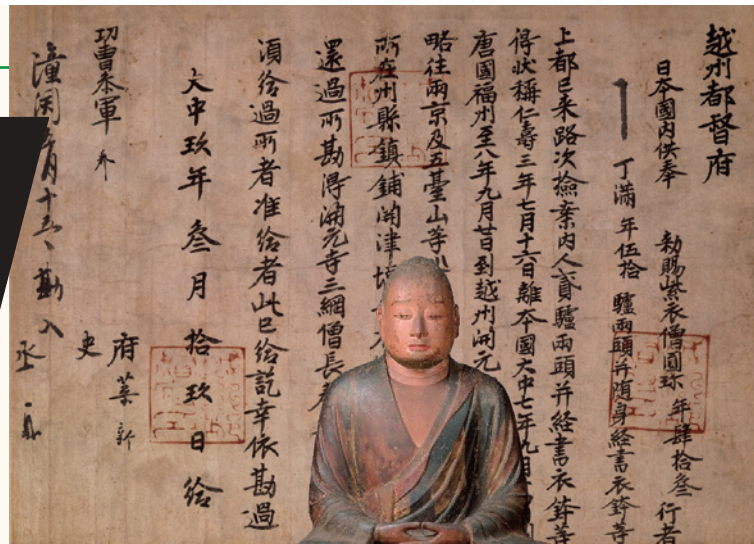 越州都督府
日夲國内供奉 勅賜紫衣僧圓珎 年肆拾叁 行者
丁滿 年伍拾 驢兩頭并随身經書衣鉢等
上都已来路次撿案内人貳驢兩頭并經書衣鉢等
得状稱仁壽三年七月十六日離夲國大中七年九月
唐國福州至八年九月廿日到越州開元
略往兩京及五臺山等
所在州縣鎮鋪開津
還過所勘得開元寺三綱僧長
須給過所者准給者此已給訖幸依勘過
大中玖年叁月拾玖日給
府葉新
史
功曹叅軍
潼関 月十五 勘入
丞